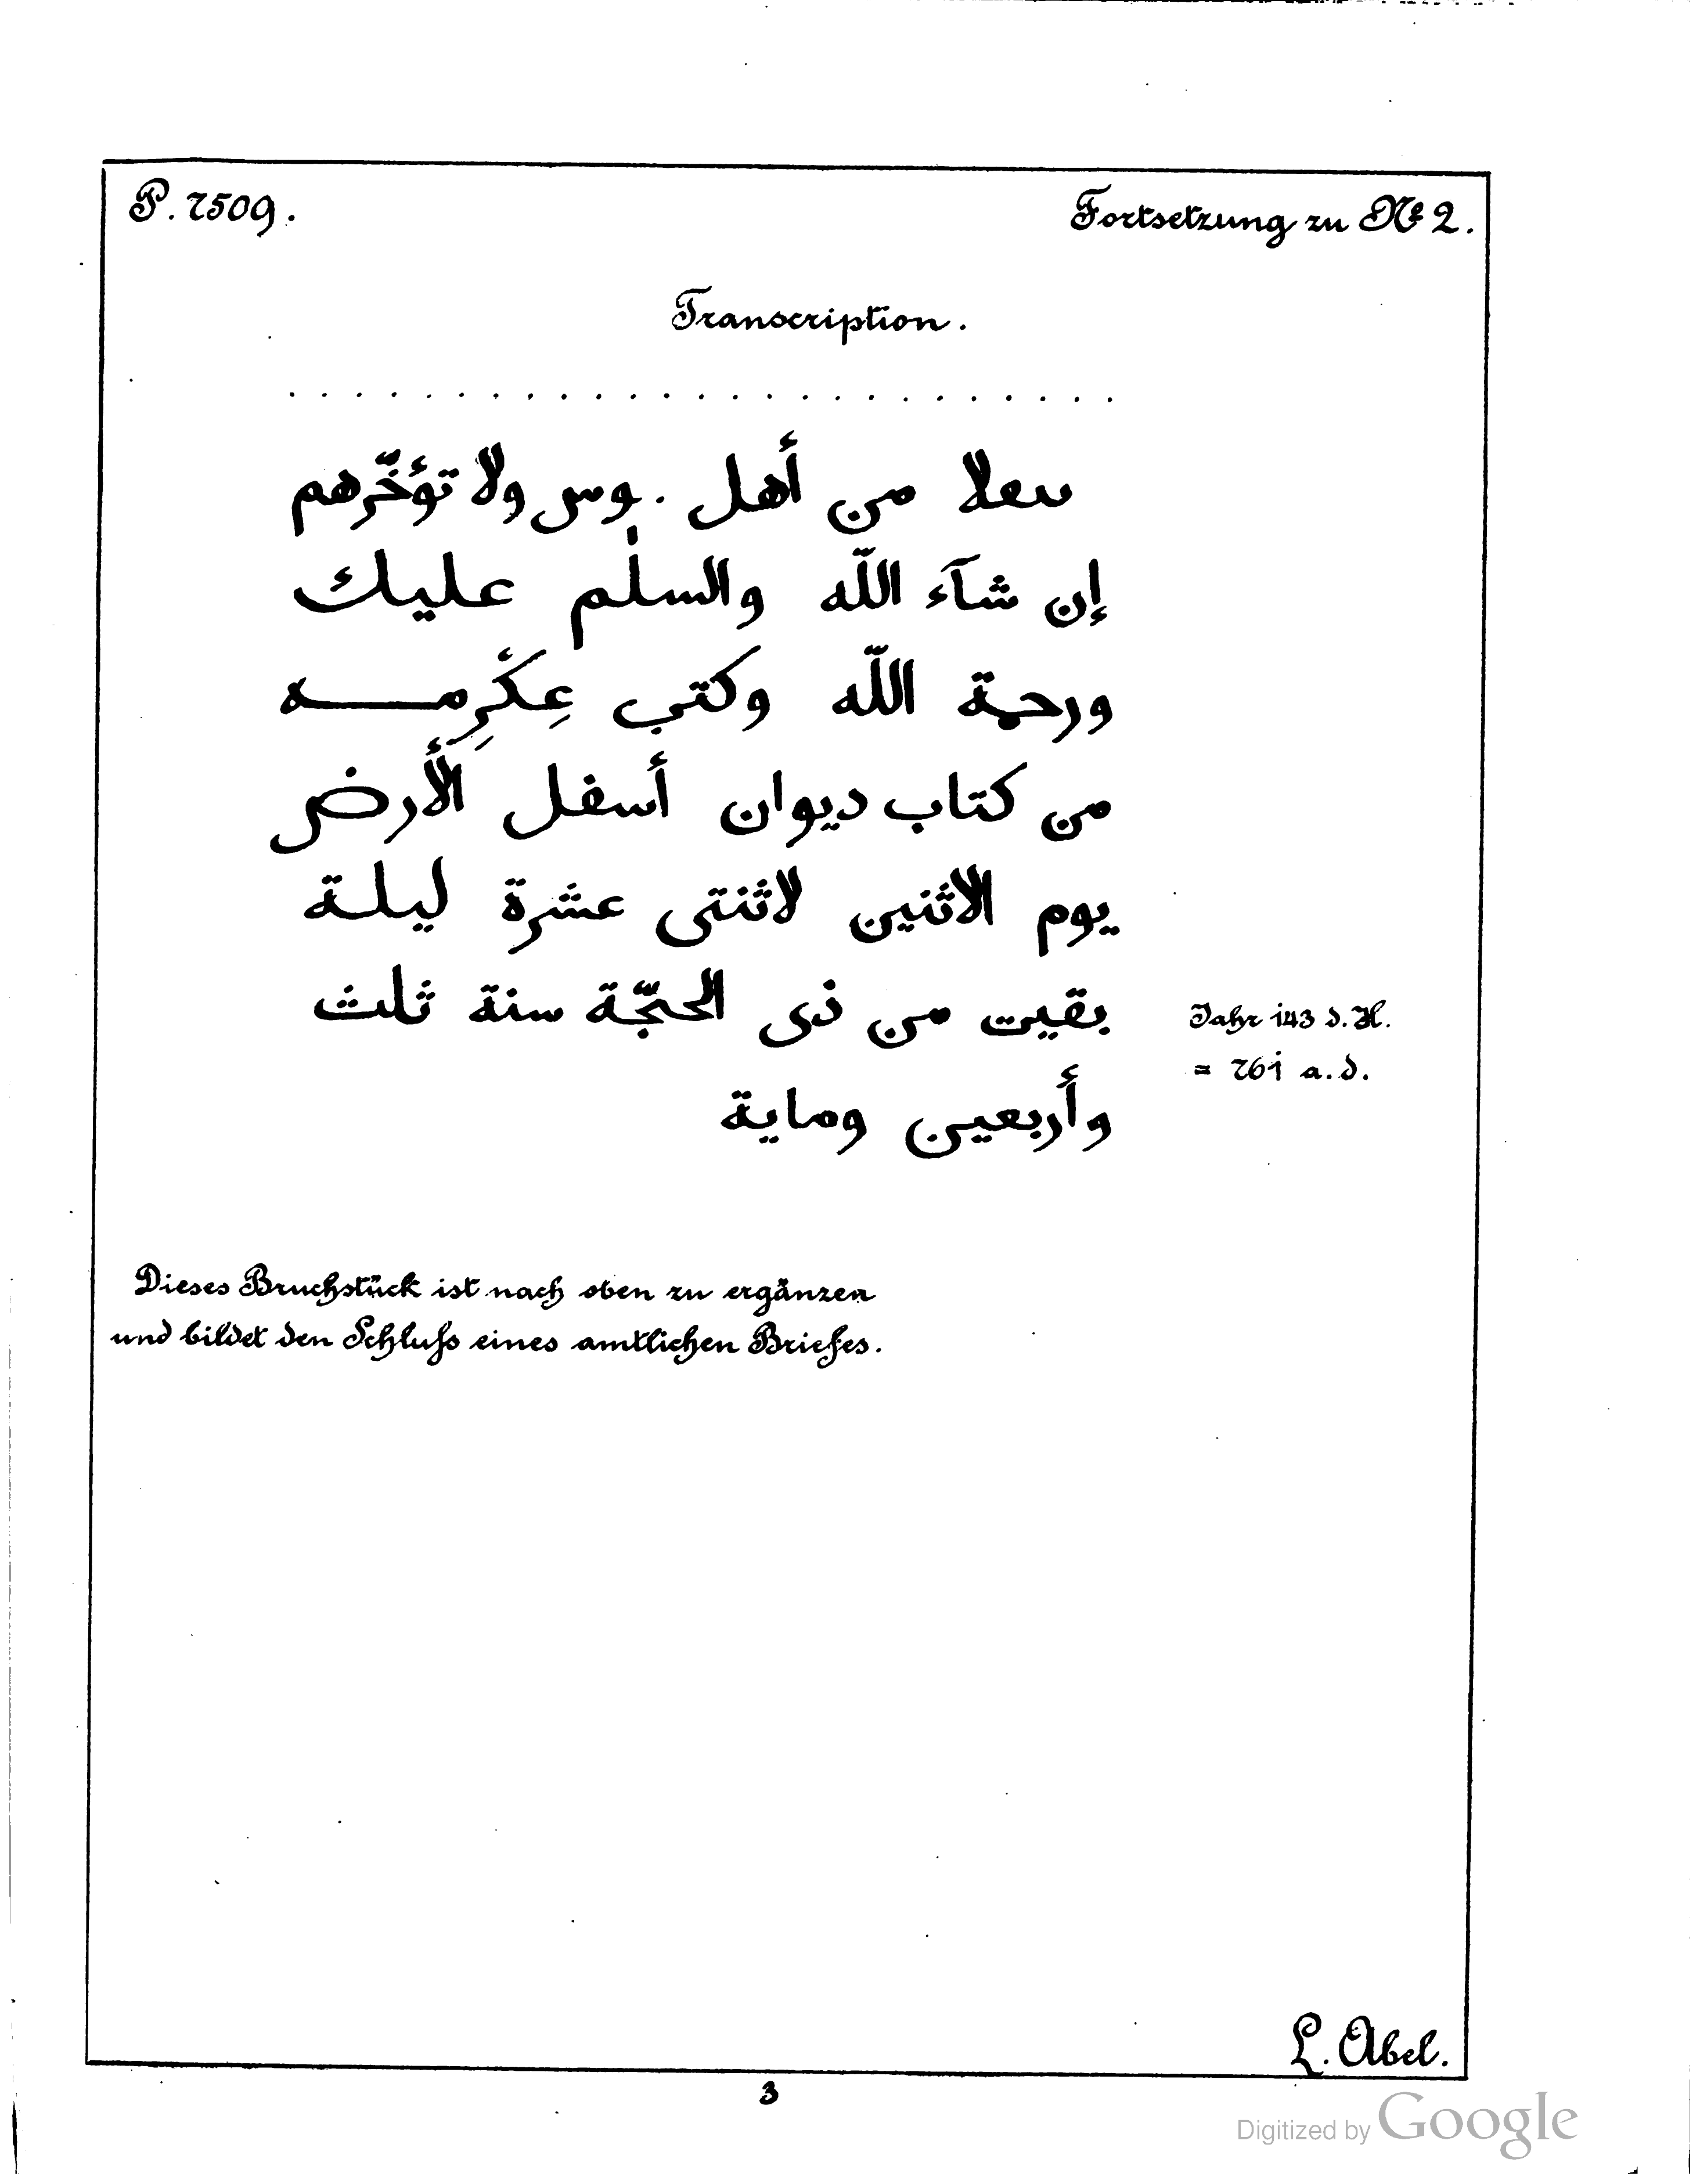 P. 7509.
Fortsetzung zu No 2.
Transcription.
. . . . . . . . . . . . . . . . . . . . . . . . .
من أهل . وس ولا تؤخّرهم
إن شآء اللّه والسلٰم عليك
ورحمة اللّه وكتب عِكْرِمـــه
من كتاب ديوان أسفل الأرض
يوم الاثنين لاثنتى عشرة ليلة
بقيت من ذى الحجّة سنة ثلث
Jahr 143 d. H.
= 761 a. d.
وأربعين وماية
Dieses Bruchstück ist nach oben zu ergänzen
und bildet den Schluſs eines amtlichen Briefes.
L. Abel.
3
Digitized by Google